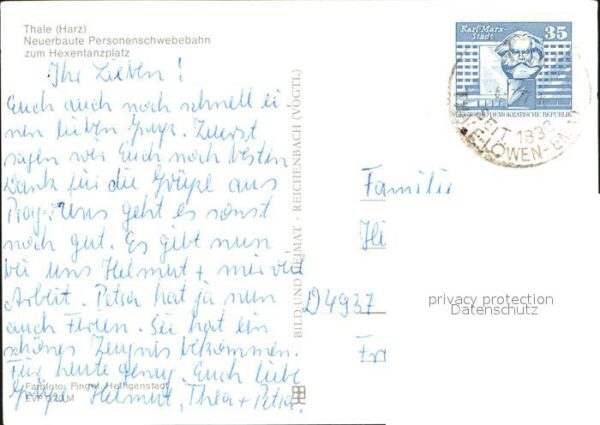 Thale (Harz)
Neuerbaute Personenschwebebahn
zum Hexentanzplatz
Ihr Lieben!
Euch auch noch schnell ei
nen lieben Gruß. Zuerst
sagen wir Euch noch besten
Dank für die Grüße aus
Prag. Uns geht es sonst
noch gut. Es gibt nun
bei uns Helmut + mir viel
Arbeit. Petra hat ja nun
auch Ferien. Sie hat ein
schönes Zeugnis bekommen.
Für heute genug. Euch liebe
Grüße Helmut, Thea + Petra.
Farbfoto: Pingel, Heiligenstadt
EVP 0,20 M
BILD UND HEIMAT · REICHENBACH (VOGTL)
Karl-Marx-
Stadt
35
DEUTSCHE DEMOKRATISCHE REPUBLIK
SEIT 1838
LÖWEN
Familie
Hi
D4937
privacy protection
Datenschutz